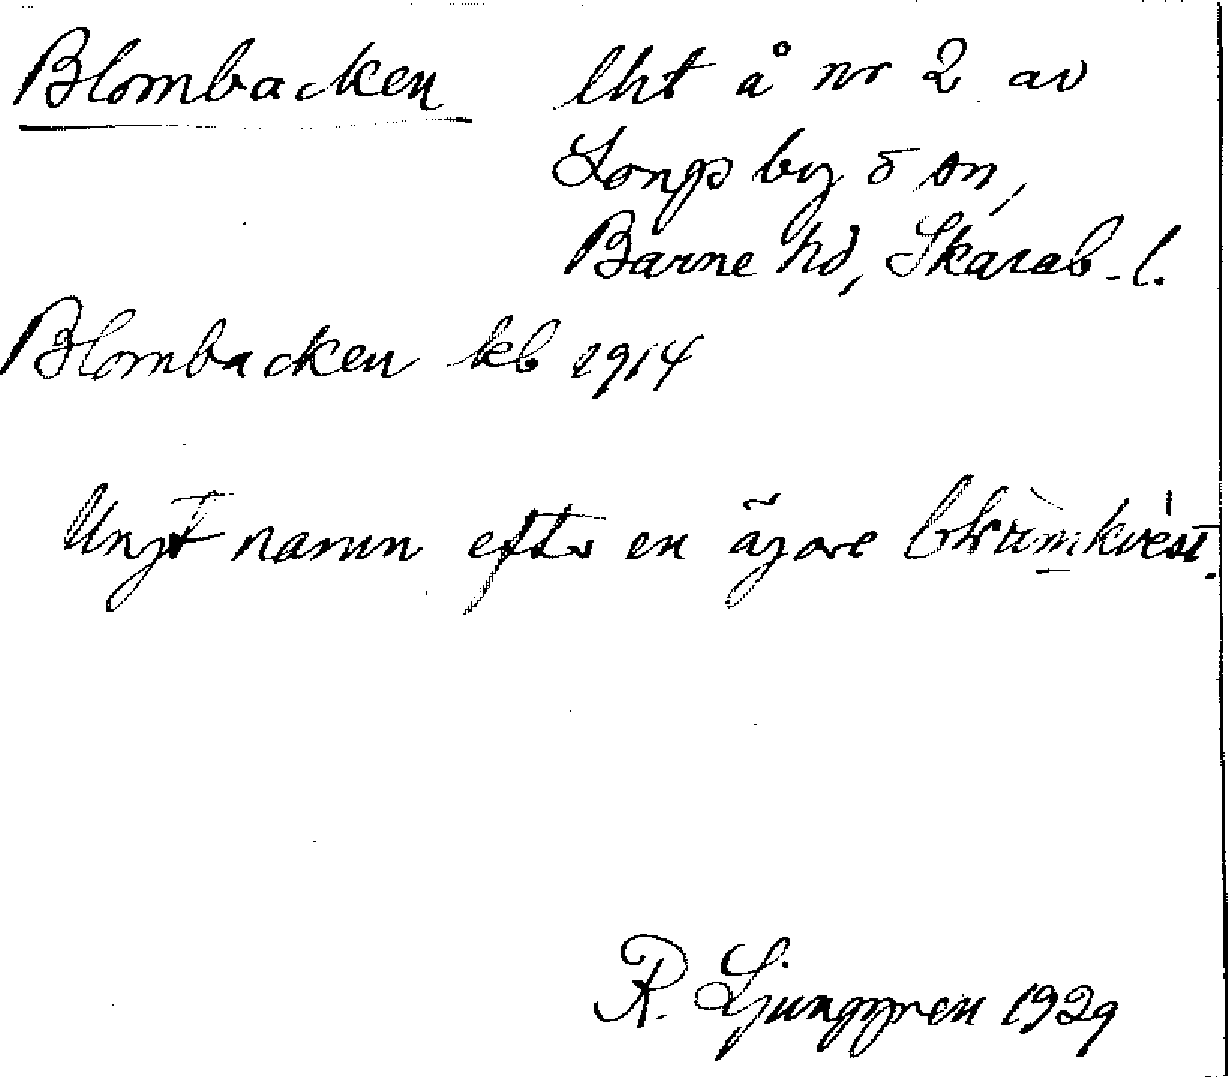 Blombacken lht å nr 2 av
Longs by o sn,
Barne hd, Skarab. l.
Blombacken kb 1914
Ungt namn efter en ägare
R. Ljunggren 1929